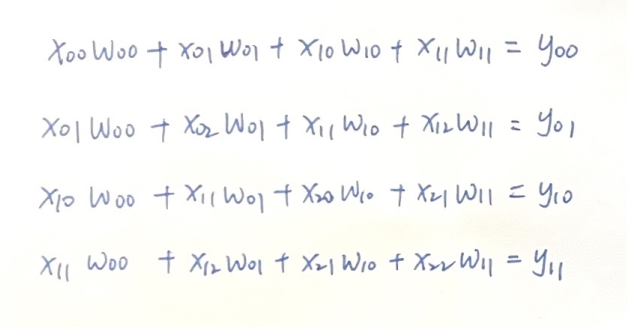 x00 w00 + x01 w01 + x10 w10 + x11 w11 = y00
x01 w00 + x02 w01 + x11 w10 + x12 w11 = y01
x10 w00 + x11 w01 + x20 w10 + x21 w11 = y10
x11 w00 + x12 w01 + x21 w10 + x22 w11 = y11